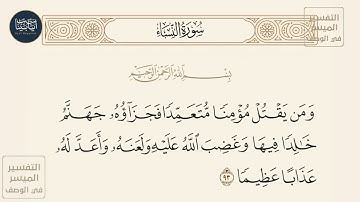 سُورَةُ النِّسَاءِ
التفسير
الميسر
في الوصف
بِسْمِ اللَّهِ الرَّحْمَٰنِ الرَّحِيمِ
وَمَن يَقْتُلْ مُؤْمِنًا مُّتَعَمِّدًا فَجَزَآؤُهُۥ جَهَنَّمُ
خَٰلِدًا فِيهَا وَغَضِبَ ٱللَّهُ عَلَيْهِ وَلَعَنَهُۥ وَأَعَدَّ لَهُۥ
عَذَابًا عَظِيمًا ٩٣
التفسير
الميسر
في الوصف